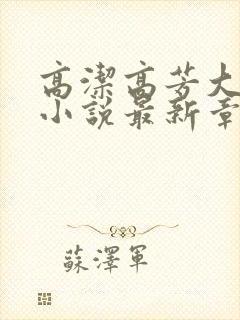 高潔高芳大
小說最新章
蘇澤軍